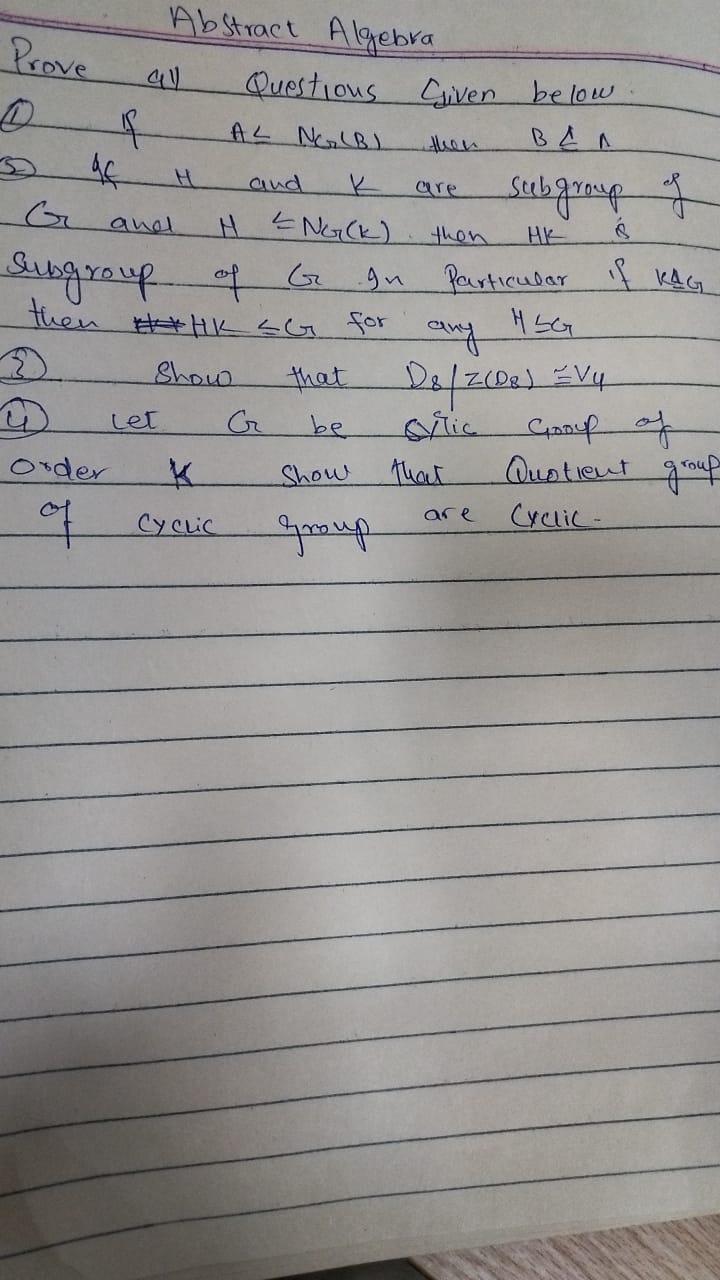 Abstract Algebra
Prove all Questions Given below.
① If A ≤ NG(B) then B ⊴ A
② If H and K are subgroup of
G and H ≤ NG(K). then HK is
Subgroup of G In Particular if K⊴G
then HK ≤ G for any H ≤ G
③ Show that D8/Z(D8) ≅ V4
④ Let G be cylic Group of
Order K Show that Quotient group
of cyclic group are Cyclic.